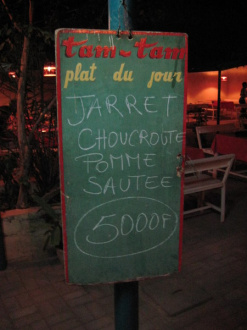 tam-tam
plat du jour
JARRET
CHOUCROUTE
POMME
SAUTEE
5000F